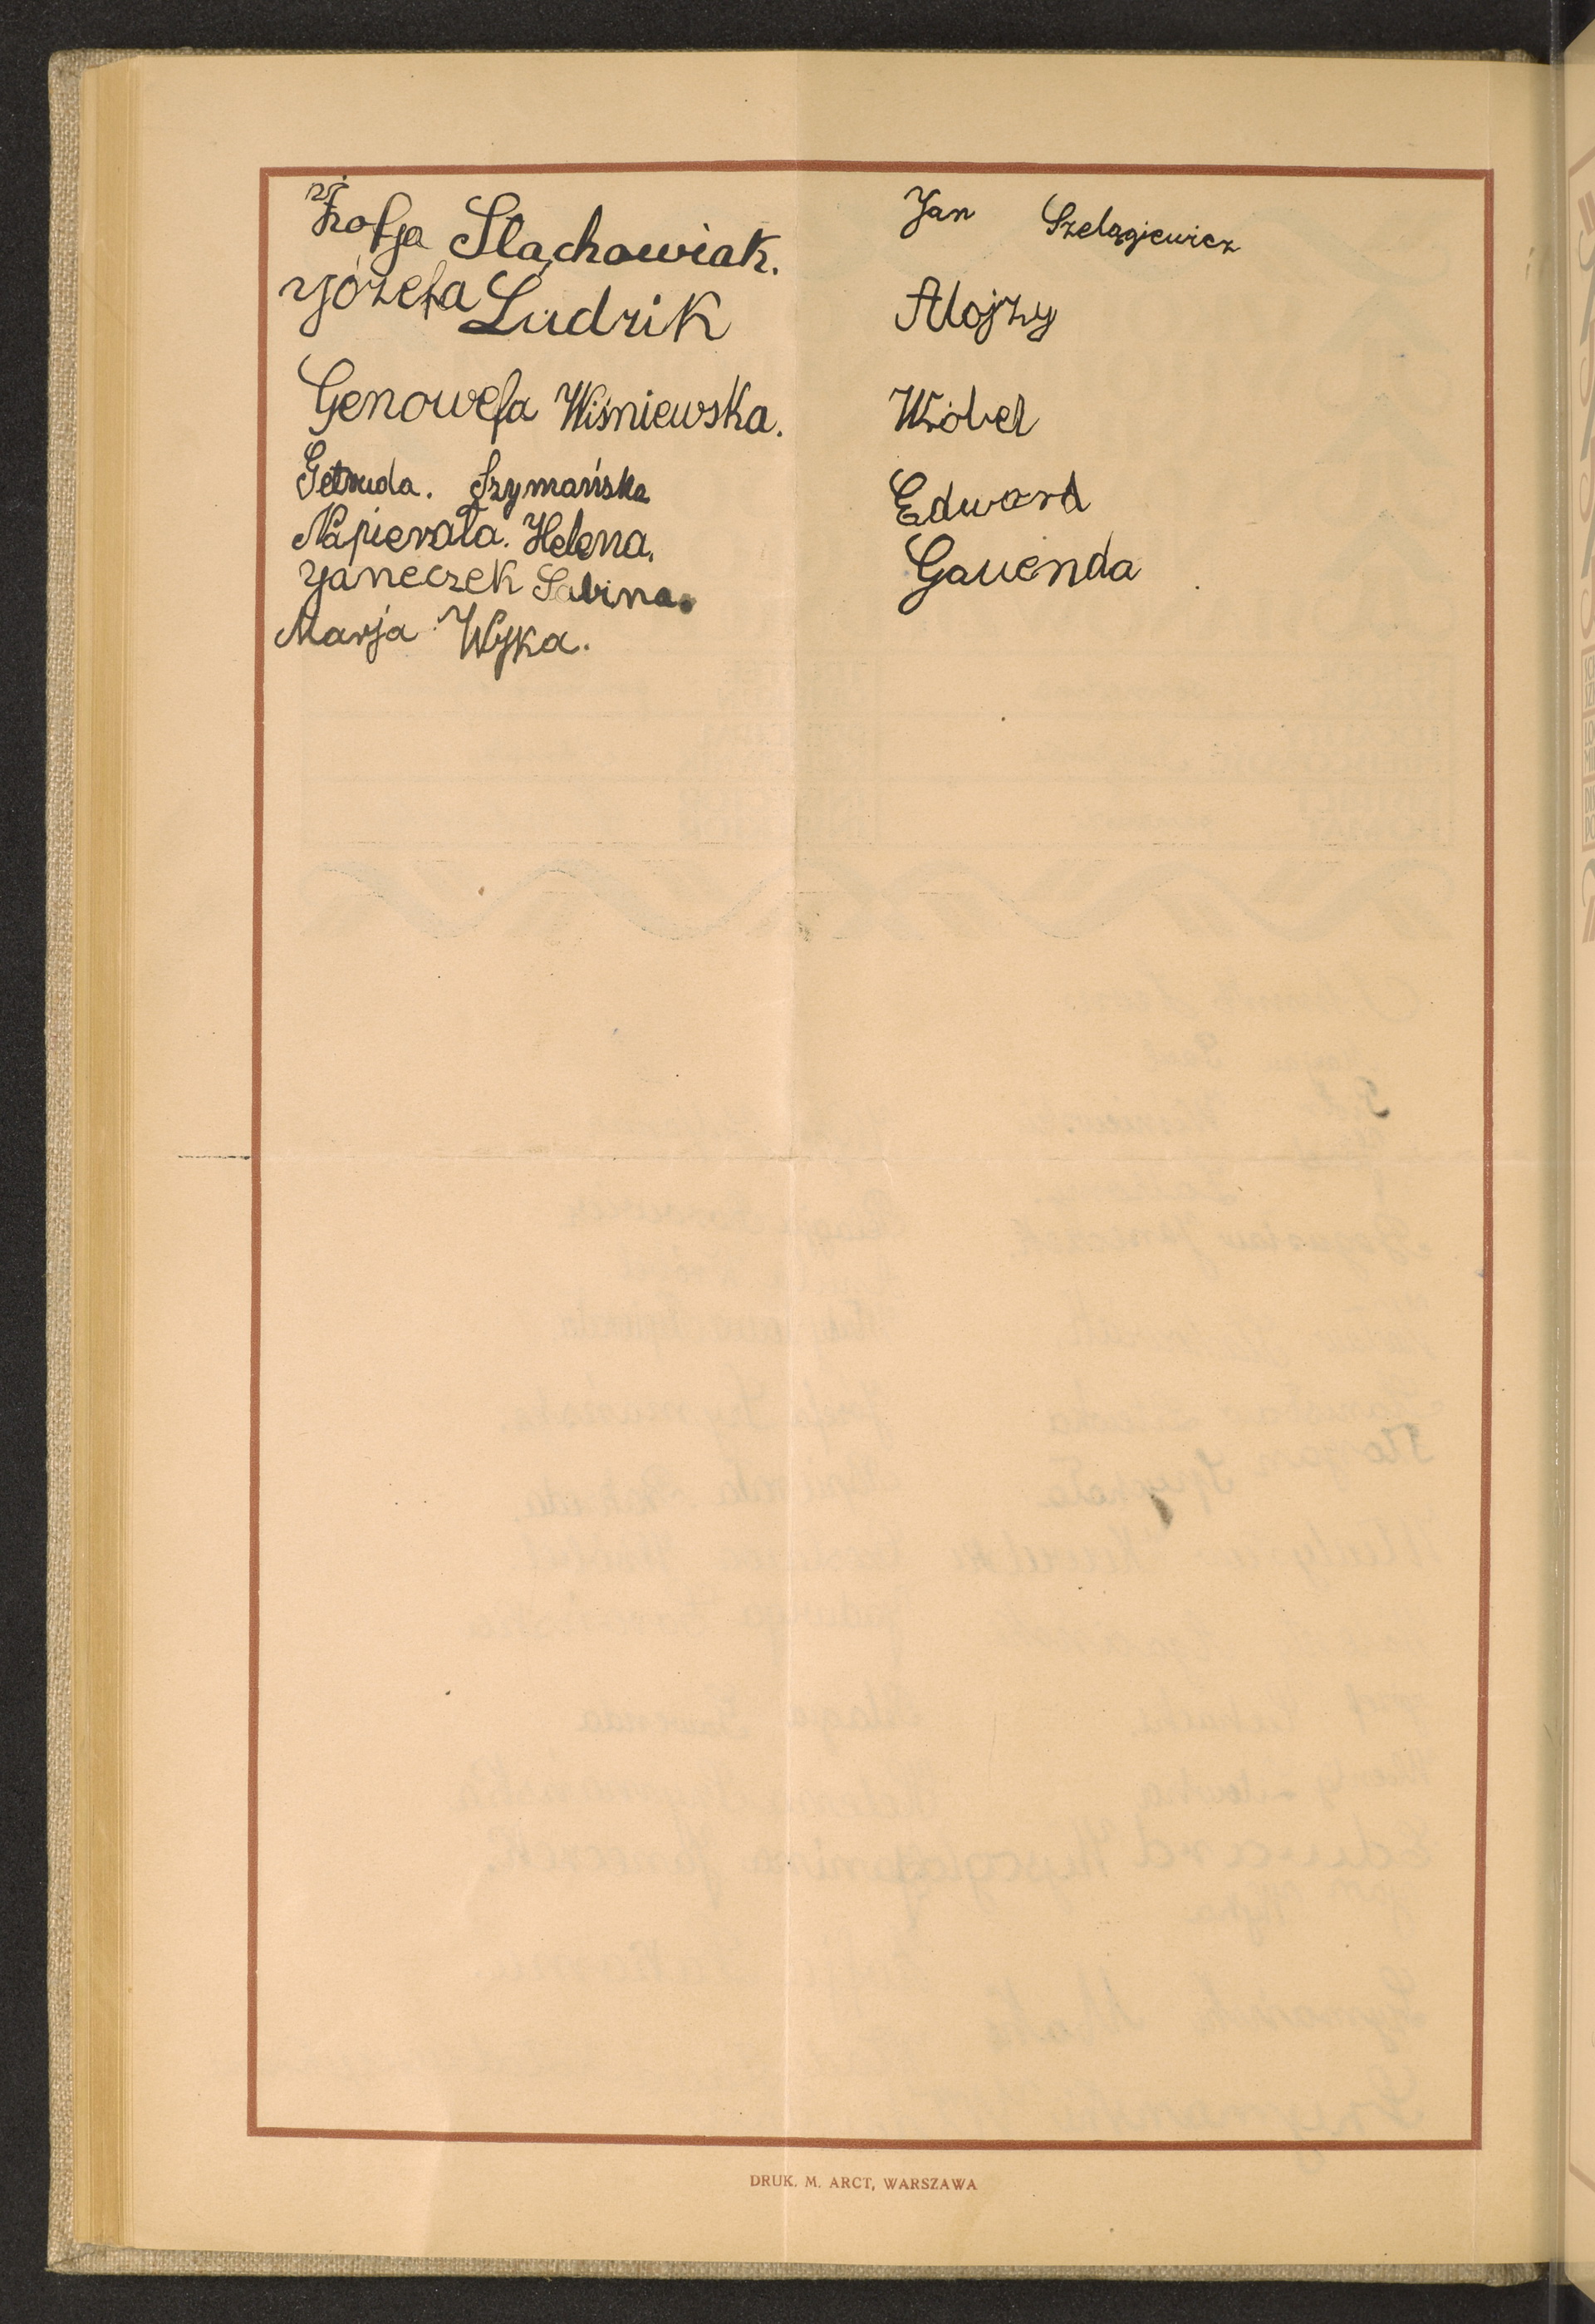 Zofja Stachowiak.
Józefa Ludzik
Genowefa Wiśniewska.
Getruda. Szymańska
Napierała. Helena.
Janeczek Sabina.
Marja Wyka.
Jan Szelągiewicz
Alojzy
Wróbel
Edward
Gawenda
DRUK. M. ARCT, WARSZAWA